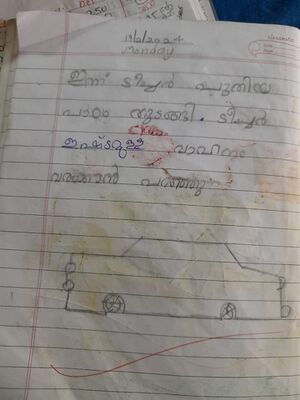 19/2/2024
Monday
ഇന്ന് ടീച്ചർ പുതിയ
പാഠം തുടങ്ങി. ടീച്ചർ
ഇഷ്ടമുള്ള വാഹനം
വരക്കാൻ പറഞ്ഞു